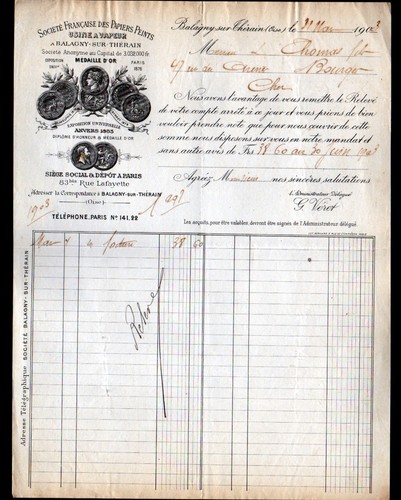 SOCIÉTÉ FRANÇAISE DES PAPIERS PEINTS
USINE À VAPEUR
A BALAGNY-SUR-THÉRAIN
Société Anonyme au Capital de
MÉDAILLE D'OR
EXPOSITION PARIS
1878
EXPOSITION UNIVERSELLE
ANVERS 1885
DIPLÔME D'HONNEUR & MÉDAILLE D'OR
SIÈGE SOCIAL & DÉPÔT À PARIS
83 bis Rue Lafayette
Adresser la Correspondance à BALAGNY-SUR-THÉRAIN
(Oise)
TÉLÉPHONE. PARIS No 141.28
1903
Balagny-sur-Thérain (Oise), le 31 Mai 1903
Monsieur Thomas
47 rue Bourges
Cher
Nous avons l'avantage de vous remettre le Relevé
de votre compte arrêté à ce jour et vous prions de bien
vouloir prendre note que pour nous couvrir de cette
somme nous disposons sur vous en notre mandat et
sans autre avis de Frs 38 60 au 30 juin 1903
Agréez Monsieur nos sincères salutations
L'Administrateur Délégué
G. Véret
Les acquits, pour être valables, devront être signés de l'Administrateur délégué.
Mai facture 38 60
Relevé
Adresse Télégraphique SOCIÉTÉ BALAGNY-SUR-THÉRAIN